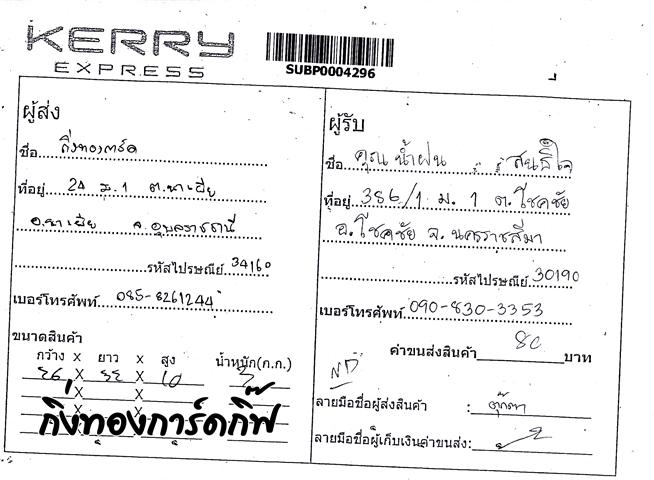 KERRY
EXPRESS
SUBP0004296
ผู้ส่ง
ชื่อ กิ่งทองการ์ด
ที่อยู่ 24 ม.1 ต.นาเยีย
อ.นาเยีย จ.อุบลราชธานี
รหัสไปรษณีย์ 34160
เบอร์โทรศัพท์ 085-8261244
ขนาดสินค้า
กว้าง X ยาว X สูง น้ำหนัก(ก.ก.)
X X 10
X X
X X
กิ่งทองการ์ดกิ๊ฟ
ผู้รับ
ชื่อ คุณ น้ำฝน
ที่อยู่ 386/1 ม. 1 ต.โชคชัย
อ.โชคชัย จ.นครราชสีมา
รหัสไปรษณีย์ 30190
เบอร์โทรศัพท์ 090-830-3353
ค่าขนส่งสินค้า 80 บาท
ND
ลายมือชื่อผู้ส่งสินค้า : ตุ๊กตา
ลายมือชื่อผู้เก็บเงินค่าขนส่ง: